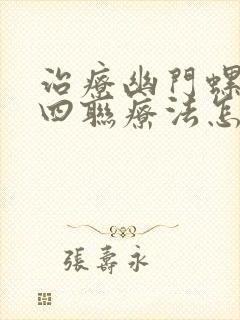 治療幽門螺
四聯療法怎
張壽永